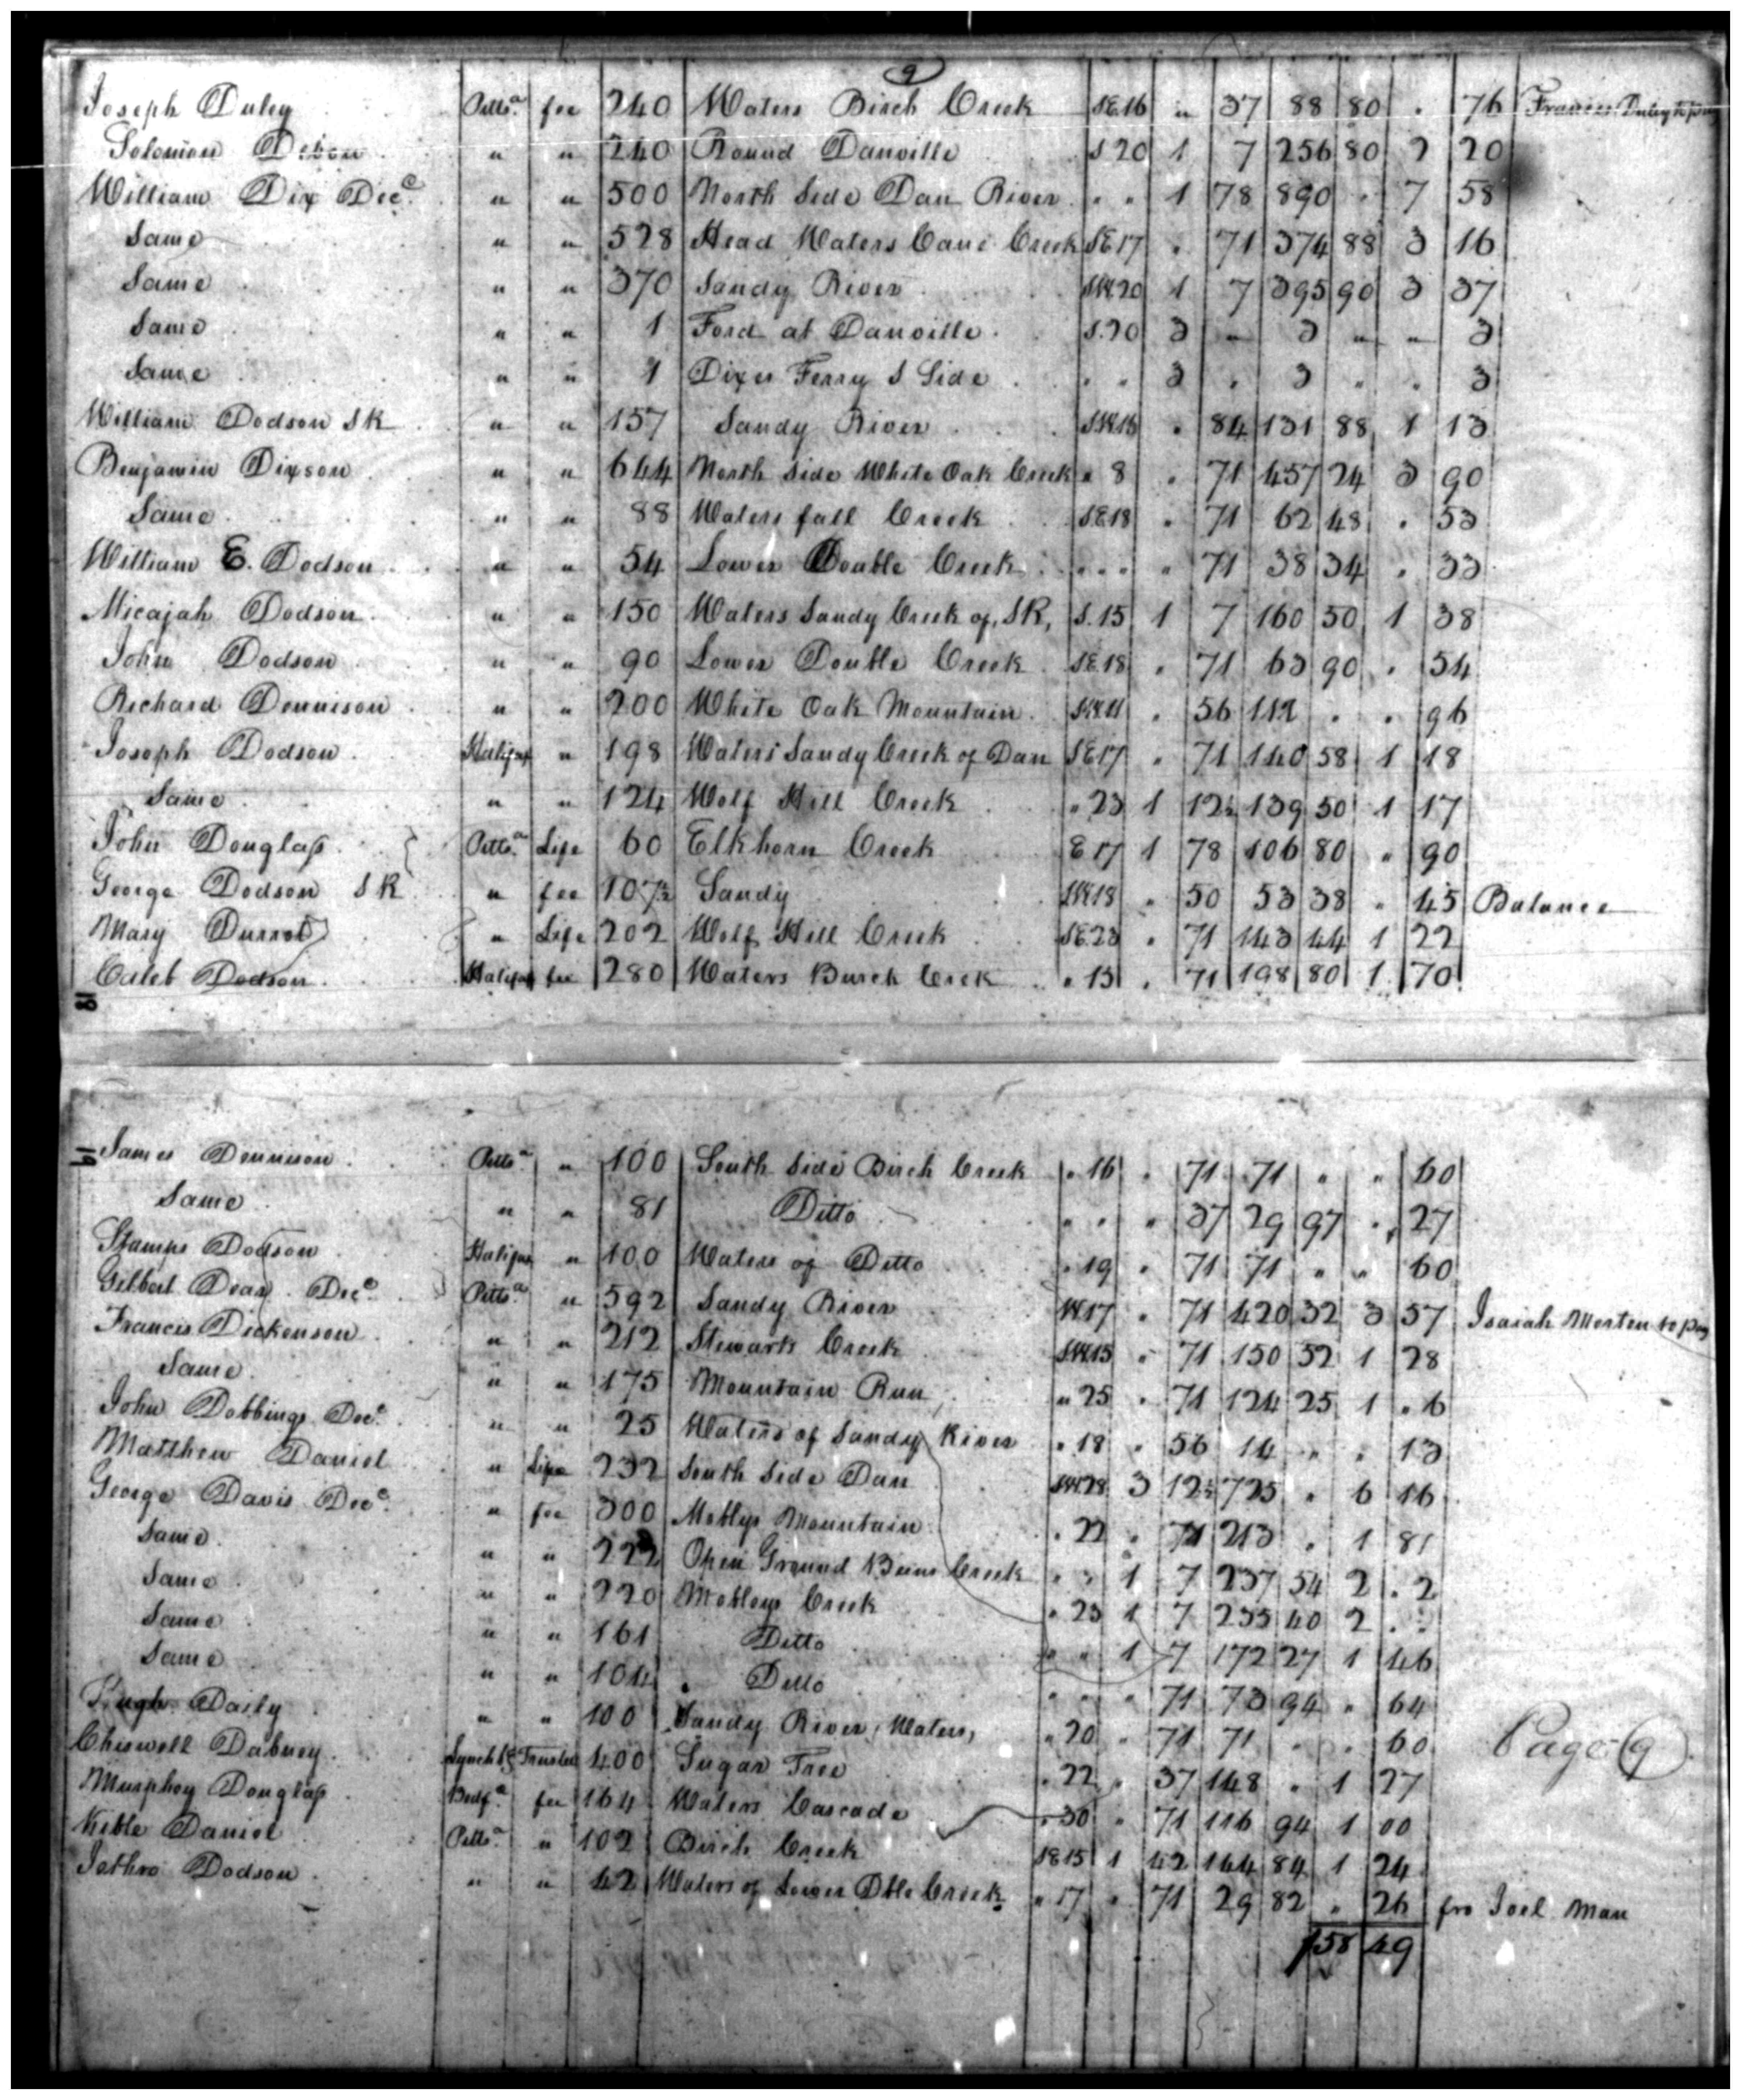 9
Joseph Duley Pitts.a fee 240 Waters Birch Creek S.E.16 " 37 88 80 . 76 Francis Duley to pay
Solomon " " 240 Round Danville S 20 1 7 256 80 2 20
William Dix Dec.d " " 500 North Side Dan River " " 1 78 890 . 7 58
Same " " 528 Head Waters Cane Creek S.E.17 . 71 374 88 3 16
Same " " 370 Sandy River S.W.20 1 7 395 90 3 37
Same " " 1 Ford at Danville S.20 3 " 3 " " 3
Same " " 1 Dixes Ferry S Side " " 3 . 3 " . 3
William Dodson S R " " 157 Sandy River S.W.18 . 84 131 88 1 13
Benjamin Dixson " " 644 North Side White Oak Creek " 8 . 71 457 24 3 90
Same " " 88 Waters fall Creek S.E.18 . 71 62 48 . 53
William E. Dodson " " 54 Lower Double Creek " " " 71 38 34 . 33
Micajah Dodson " " 150 Waters Sandy Creek of, S R, S.15 1 7 160 50 1 38
John Dodson " " 90 Lower Double Creek S.E.18 . 71 63 90 . 54
Richard Dennison " " 200 White Oak Mountain S.W.11 . 56 112 . . 96
Joseph Dodson Halifax " 198 Waters Sandy Creek of Dan S.E.17 " 71 140 58 1 18
Same " " 124 Wolf Hill Creek " 23 1 12½ 139 50 1 17
John Douglass Pitts.a Life 60 Elkhorn Creek E 17 1 78 106 80 " 90
George Dodson S R " fee 107½ Sandy S.W.18 . 50 53 38 " 45 Balance
Mary Durrot " Life 202 Wolf Hill Creek S.E.23 . 71 143 44 1 22
Caleb Dodson Halifax fee 280 Waters Burch Creek " 13 . 71 198 80 1 70
James Dennison Pitts.a " 100 South Side Birch Creek " 16 . 71 71 " " 60
Same " " 81 Ditto " " " 37 29 97 . 27
Stamps Dodson Halifax " 100 Waters of Ditto " 19 . 71 71 " " 60
Gilbert Dear Dec.d Pitts.a " 592 Sandy River W.17 . 71 420 32 3 57 Isaiah Morton to pay
Francis Dickenson " " 212 Stewarts Creek S.W.15 " 71 150 52 1 28
Same " " 175 Mountain Run " 25 . 71 124 25 1 . 6
John Dobbings Dec.d " " 25 Waters of Sandy River " 18 " 56 14 " " 13
Matthew Daniel " Life 232 South Side Dan S.W.28 3 12½ 725 . 6 16
George Davis Dec.d " fee 300 Moblys Mountain . 22 . 71 213 . 1 81
Same " " 222 Open Ground Beans Creek " " 1 7 237 54 2 . 2
Same " " 220 Mobleys Creek " 23 1 7 235 40 2 . .
Same " " 161 Ditto " " 1 7 172 27 1 46
Same " " 104 Ditto " " " 71 73 94 " 64
Hugh Daily " " 100 Sandy River Waters, " 20 " 71 71 . . 60
Chiswell Dabney Lynchb.g Trustee 400 Sugar Tree . 22 . 37 148 . 1 27 Page 9
Murphey Douglass Bedf.d fee 164 Waters Cascade . 30 " 71 116 94 1 00
Kible Daniel Pitts.a " 102 Birch Creek S.E.15 1 42 144 84 1 24
Jethro Dodson " " 42 Waters of Lower Dble Creek " 17 " 71 29 82 " 26 fro Joel Man
58 49